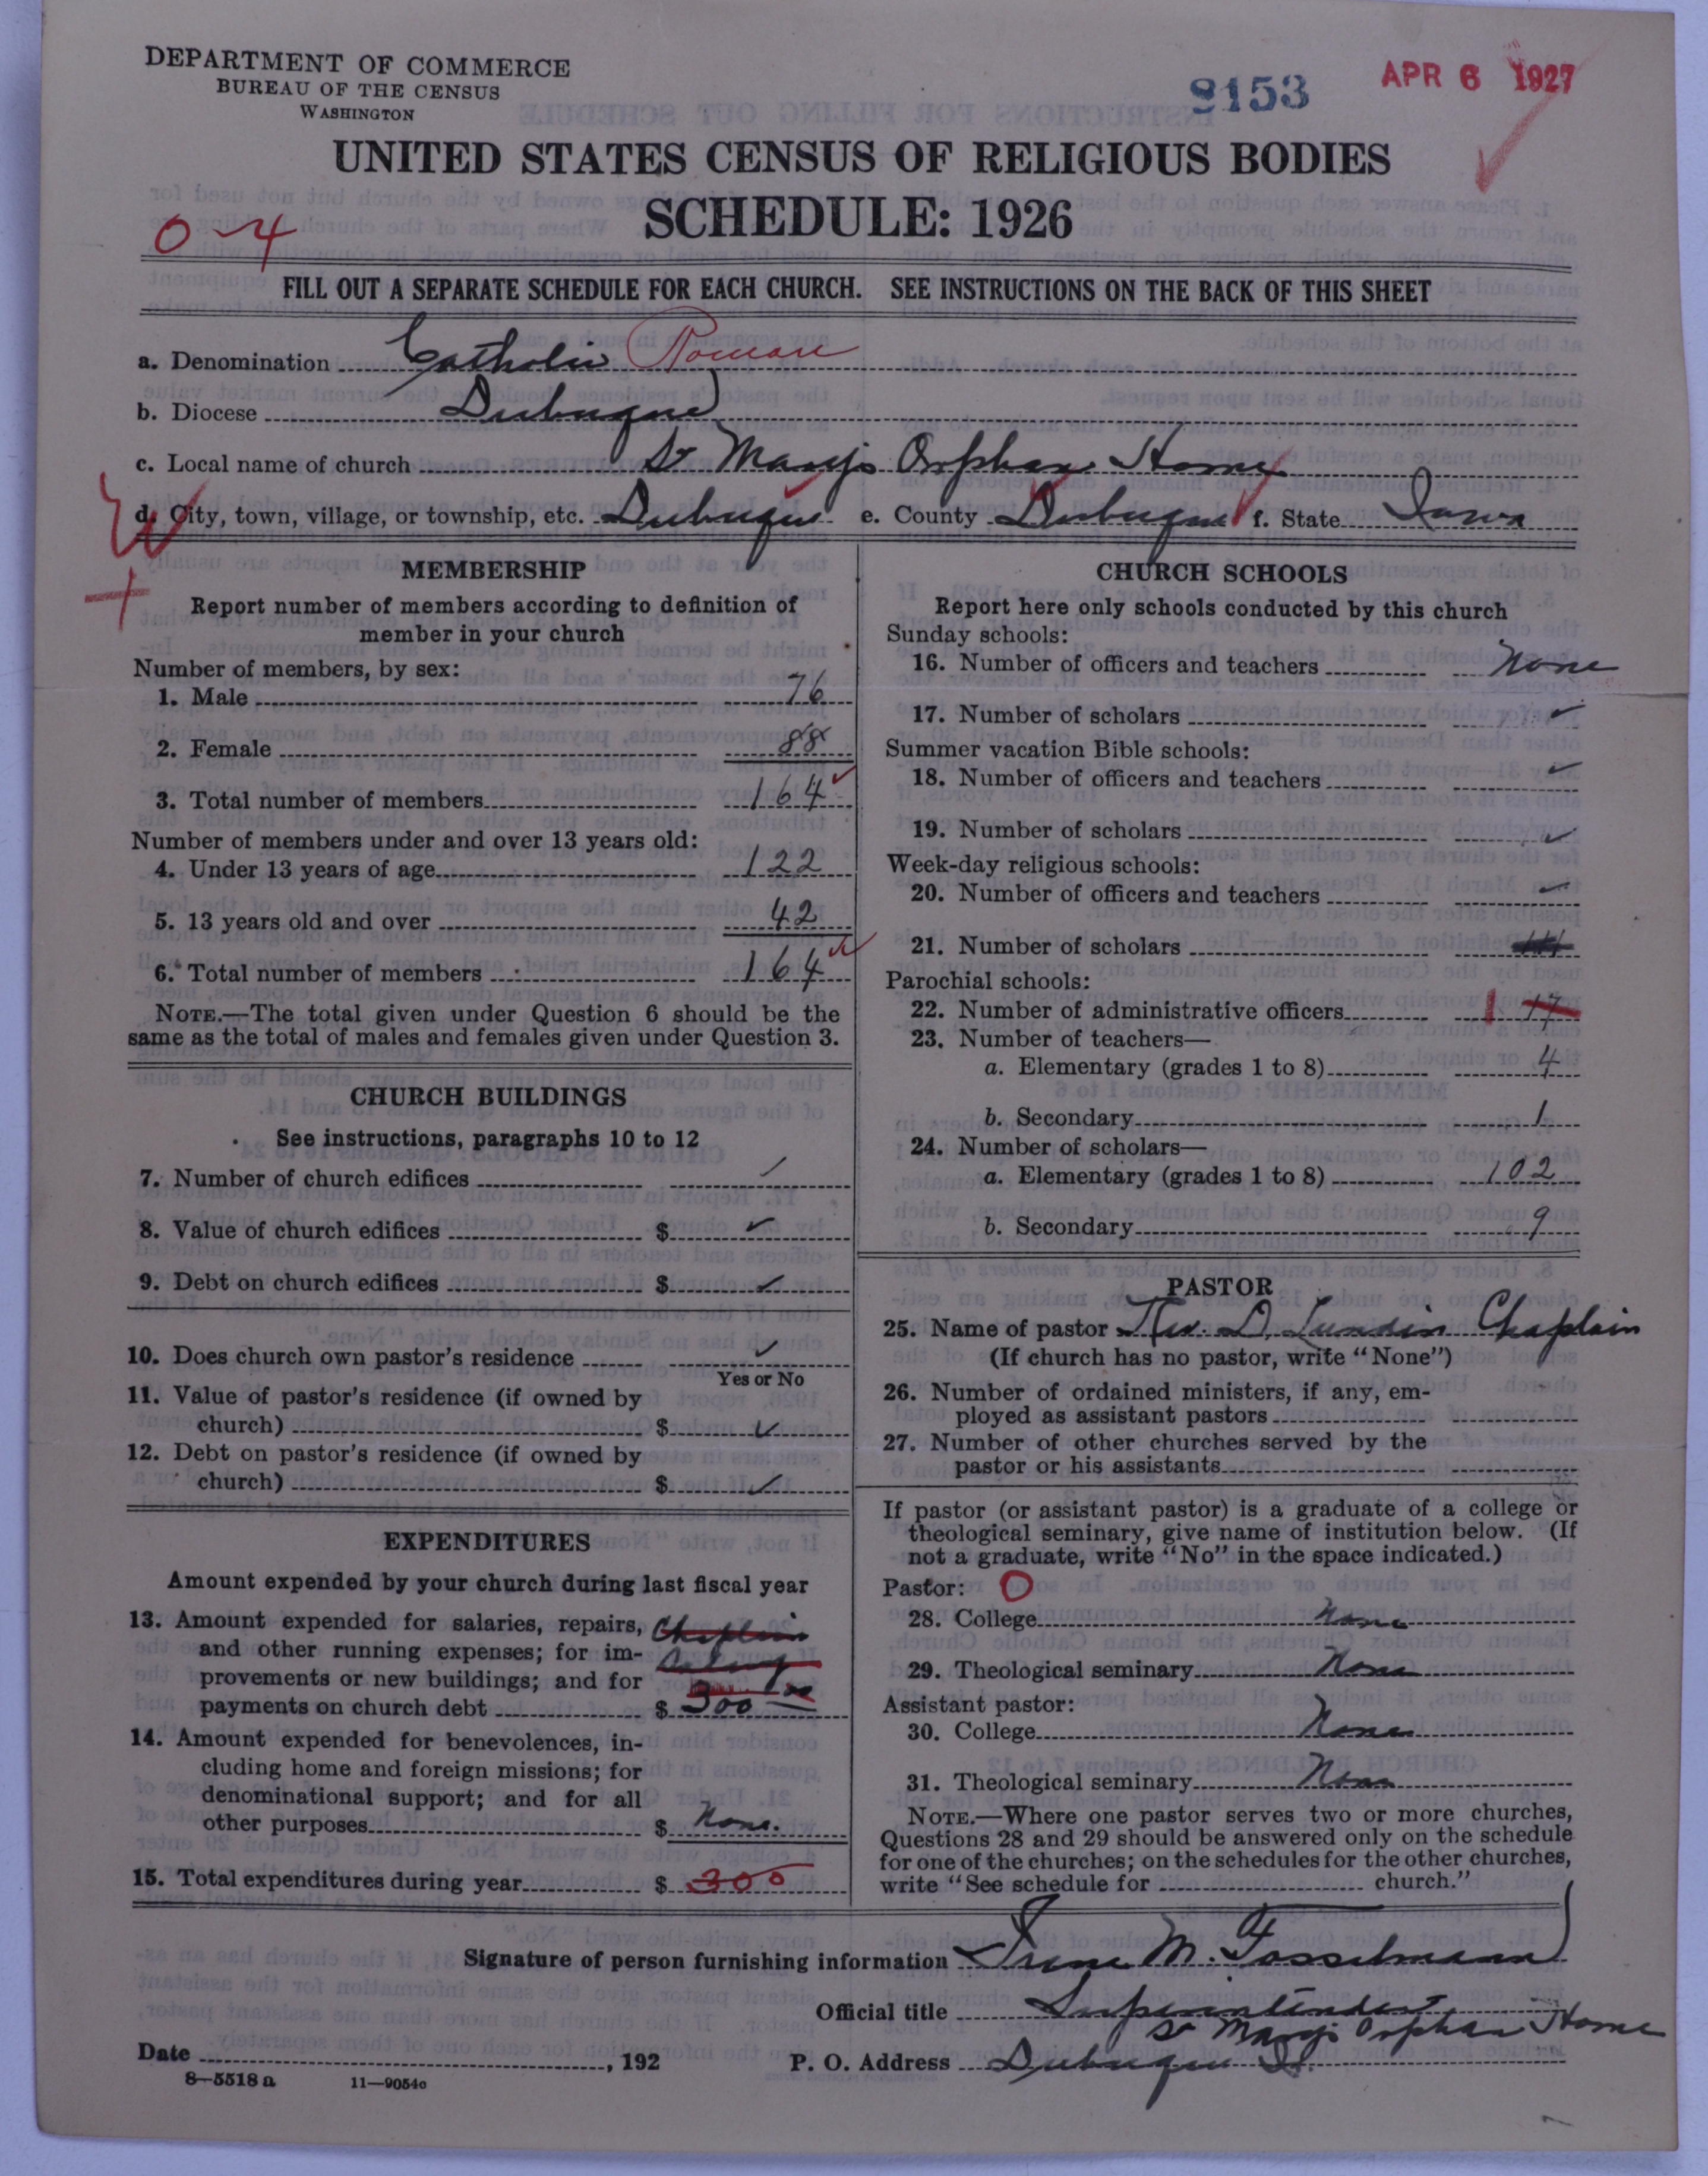 DEPARTMENT OF COMMERCE
BUREAU OF THE CENSUS
WASHINGTON
9153
APR 6 1927
UNITED STATES CENSUS OF RELIGIOUS BODIES
SCHEDULE: 1926
0-4
FILL OUT A SEPARATE SCHEDULE FOR EACH CHURCH. SEE INSTRUCTIONS ON THE BACK OF THIS SHEET
a. Denomination Catholic Roman
b. Diocese Dubuque
c. Local name of church St Mary's Orphan Home
d. City, town, village, or township, etc. Dubuque e. County Dubuque f. State Iowa
MEMBERSHIP
Report number of members according to definition of
member in your church
Number of members, by sex:
1. Male 76
2. Female 88
3. Total number of members 164
Number of members under and over 13 years old:
4. Under 13 years of age 122
5. 13 years old and over 42
6. Total number of members 164
NOTE.—The total given under Question 6 should be the
same as the total of males and females given under Question 3.
CHURCH BUILDINGS
See instructions, paragraphs 10 to 12
7. Number of church edifices ✓
8. Value of church edifices $ ✓
9. Debt on church edifices $ ✓
10. Does church own pastor's residence ✓
Yes or No
11. Value of pastor's residence (if owned by
church) $ ✓
12. Debt on pastor's residence (if owned by
church) $ ✓
EXPENDITURES
Amount expended by your church during last fiscal year
13. Amount expended for salaries, repairs, Chaplain
and other running expenses; for im- Salary
provements or new buildings; and for
payments on church debt $ 300 00
14. Amount expended for benevolences, in-
cluding home and foreign missions; for
denominational support; and for all
other purposes $ None.
15. Total expenditures during year $ 300
CHURCH SCHOOLS
Report here only schools conducted by this church
Sunday schools:
16. Number of officers and teachers None
17. Number of scholars ✓
Summer vacation Bible schools:
18. Number of officers and teachers ✓
19. Number of scholars ✓
Week-day religious schools:
20. Number of officers and teachers ✓
21. Number of scholars
Parochial schools:
22. Number of administrative officers 1 17
23. Number of teachers—
a. Elementary (grades 1 to 8) 4
b. Secondary 1
24. Number of scholars—
a. Elementary (grades 1 to 8) 102
b. Secondary 9
PASTOR
25. Name of pastor Rev. D. Lundin Chaplain
(If church has no pastor, write "None")
26. Number of ordained ministers, if any, em-
ployed as assistant pastors
27. Number of other churches served by the
pastor or his assistants
If pastor (or assistant pastor) is a graduate of a college or
theological seminary, give name of institution below. (If
not a graduate, write "No" in the space indicated.)
Pastor: O
28. College None
29. Theological seminary None
Assistant pastor:
30. College None
31. Theological seminary None
NOTE.—Where one pastor serves two or more churches,
Questions 28 and 29 should be answered only on the schedule
for one of the churches; on the schedules for the other churches,
write "See schedule for church."
Signature of person furnishing information Irene M. Fosselmann
Official title Superintendent
St Mary's Orphan Home
Date , 192 P. O. Address Dubuque Ia.
8—5518 a 11—9054c